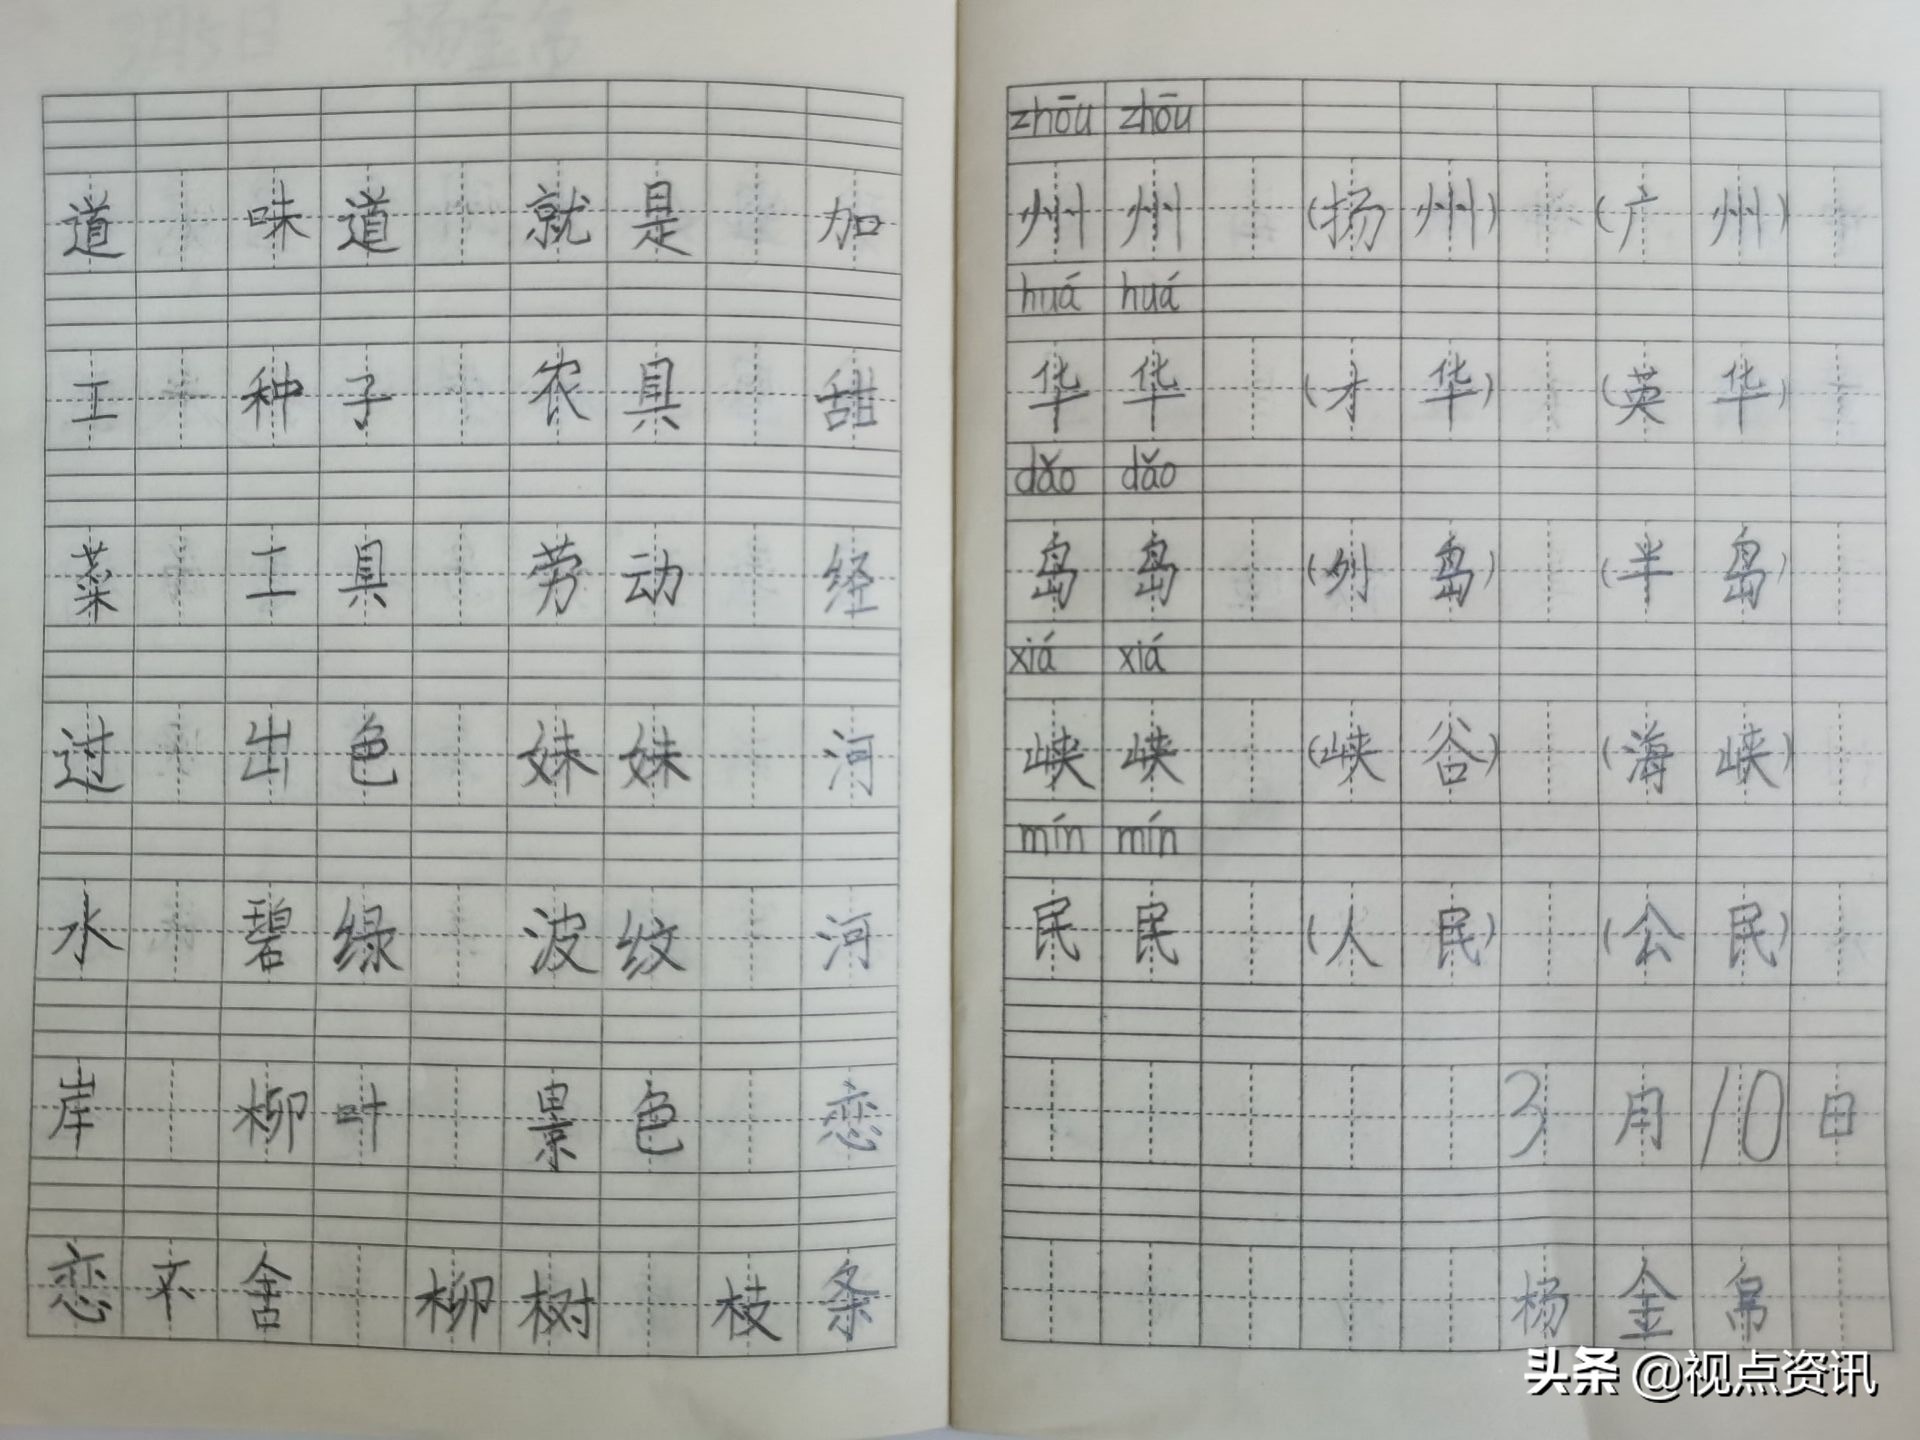 道 味道 就是 加
工 种子 农具 甜
菜 工具 劳动 经
过 出色 妹妹 河
水 碧绿 波纹 河
岸 柳叶 景色 恋
恋不舍 柳树 枝条
zhōu zhōu
州 州 (扬州) (广州)
huá huá
华 华 (才华) (英华)
dǎo dǎo
岛 岛 (列岛) (半岛)
xiá xiá
峡 峡 (峡谷) (海峡)
mín mín
民 民 (人民) (公民)
3月10日
杨金帛
头条 @视点资讯